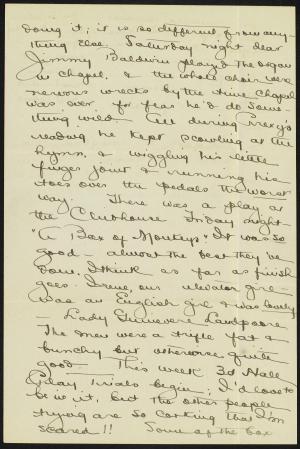 doing it; it is so different from any-
thing else. Saturday night dear
Jimmy Baldwin played the organ
in Chapel, & the whole choir were
nervous wrecks by the time Chapel
was over, for fear he'd do some-
thing wild. All during
reading he kept scowling at the
hymn, & wiggling his little
finger joint & running his
toes over the pedals the worst
way. There was a play at
the Clubhouse Friday night -
"A Box of Monkeys." It was so
good - almost the best they've
done, I think as far as finish
goes. Irene, our elevator girl -
was an English girl & was lovely
- Lady Guinevere Landpoore.
The men were a trifle fat &
bunchy but otherwise quite
good - This week 3d Hall
Play trials begin; I'd love to
be in it, but the other people
trying are so corking that I'm
scared!! Some of the box